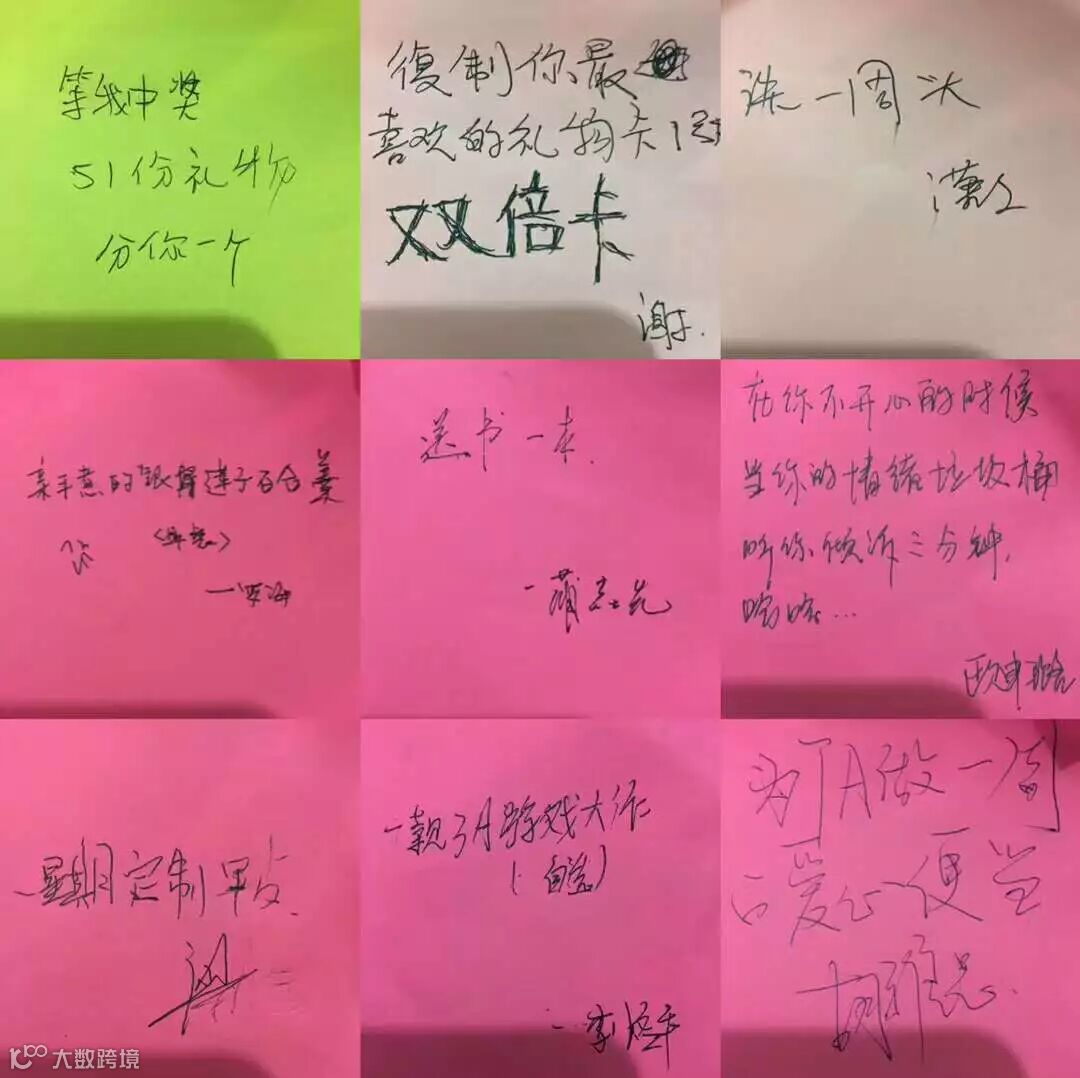 等我中奖
51份礼物
分你一个
復制你最
喜欢的礼物卡1
双倍卡
谢
洗一周
亲手煮的"银耳莲子百合羹
送书一本.
在你不开心的时候
当你的情绪垃圾桶
听你倾诉三分钟,
哈哈...
一星期定制早点.
一款3A游戏大作
(自选)
一李
为TA做一周
爱心便当
胡雅
大数跨境